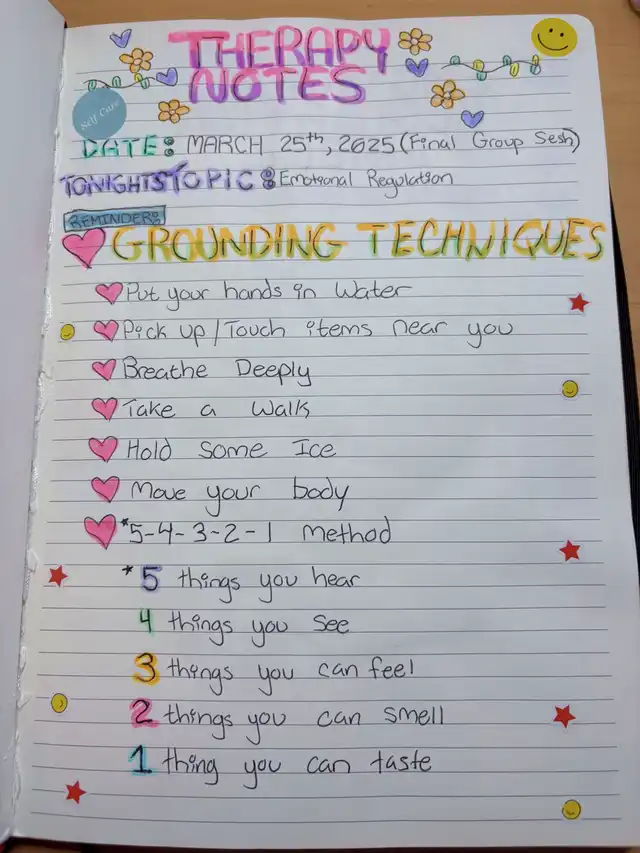 THERAPY
NOTES
Self Care
DATE: MARCH 25th, 2025 (Final Group Sesh)
TONIGHTS TOPIC: Emotional Regulation
REMINDER:
GROUNDING TECHNIQUES
Put your hands in Water
Pick up/Touch items near you
Breathe Deeply
Take a Walk
Hold Some Ice
Move your body
*5-4-3-2-1 Method
*5 things you hear
4 things you See
3 things you can feel
2 things you can smell
1 thing you can taste